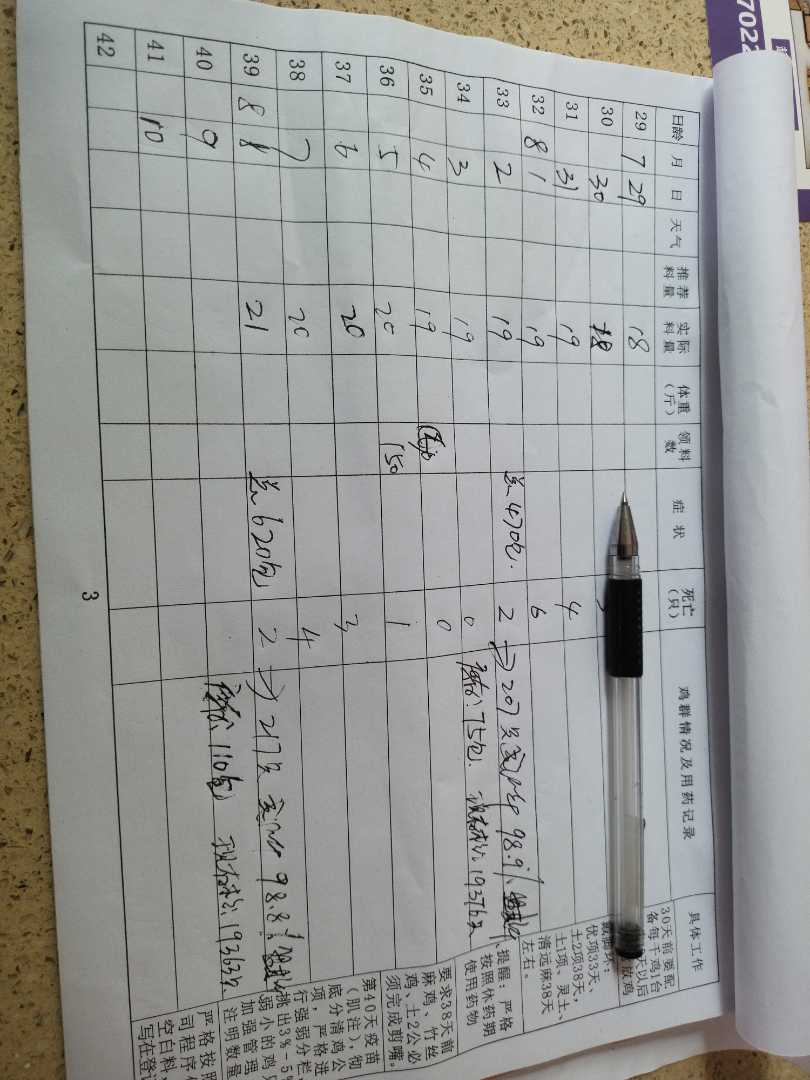 7022
日龄 月 日 天气 推荐料量 实际料量 体重（斤） 领料数 症状 死亡（只） 鸡群情况及用药记录 具体工作
29 7 29 18
30 30 18
31 31 19 4
32 8 1 19 6
33 2 19 总470包. 2 → 207只 98.9%
34 3 19 0 75包. 19376只
35 4 19 0
36 5 20 150 1
37 6 20 3
38 7 20 4
39 8 8 21 总620包 2 → 217只 98.8%
40 9 110包 19363只
41 10
42
30天前要配
备每千鸡1台
天以后
放鸡
优项33天、
土2项38天，
土1项、灵土、
清远麻38天
左右。
提醒：严格
按照休药期
使用药物
要求38天前
麻鸡、竹丝
鸡、土2公必
须完成剪嘴。
第40天疫苗
（肌注），彻
底分清鸡公
项，严格进
行强弱分栏，
挑出3%－5%
弱小的鸡只
加强管理
注明数量
严格按照
司程序
空白料，
写在登记
3